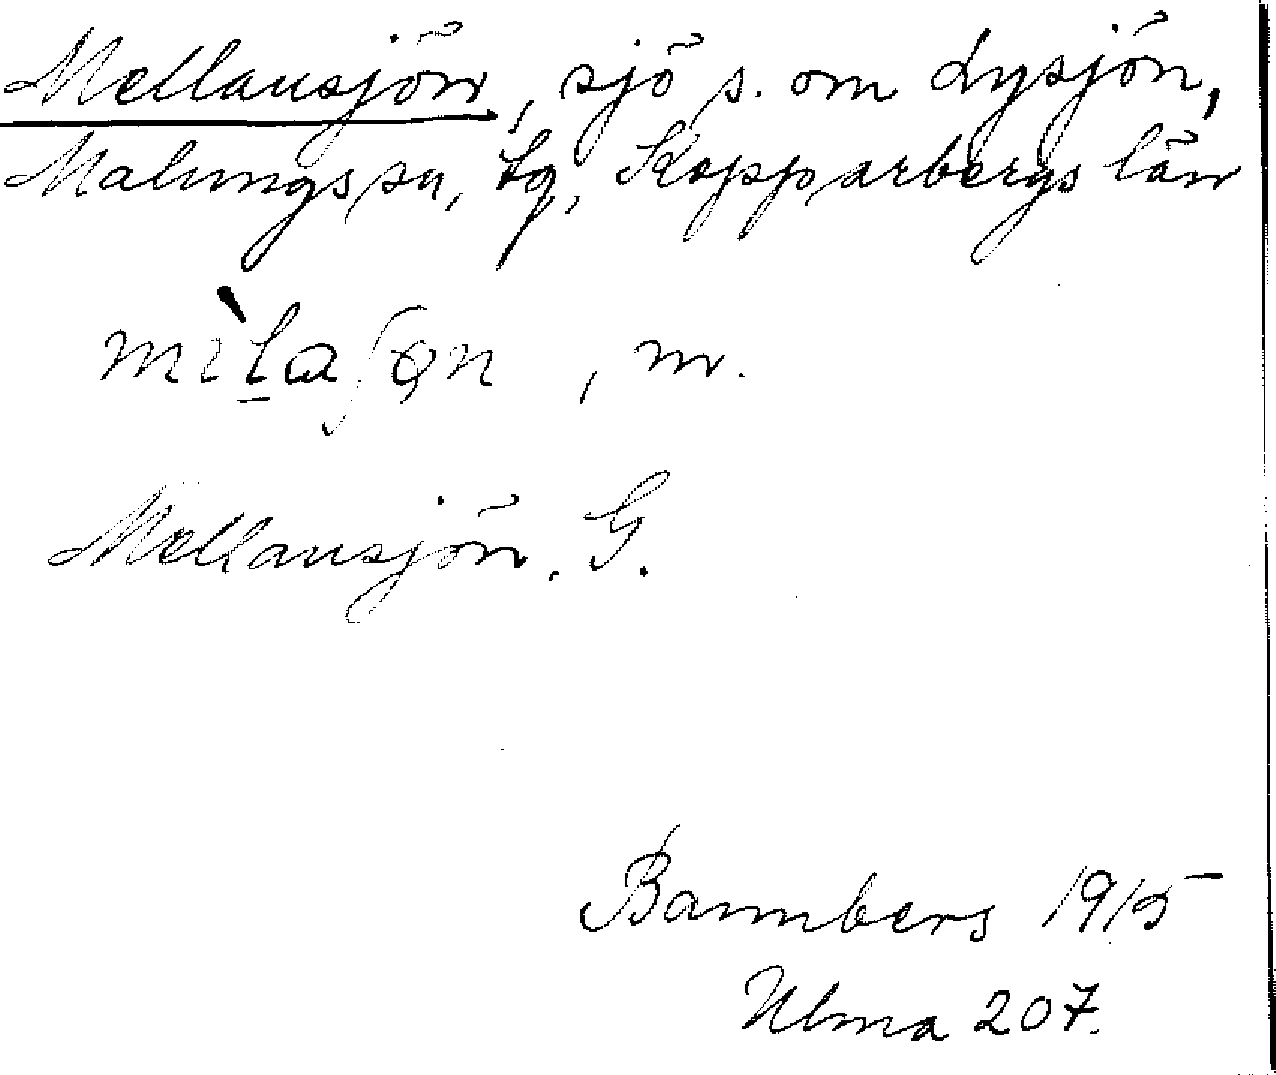 Mellansjön, sjö s. om Lysjön,
Malungs sn, Kopparbergs län
, m.
Mellansjön. G.
Bannbers 1915
Ulma 207.